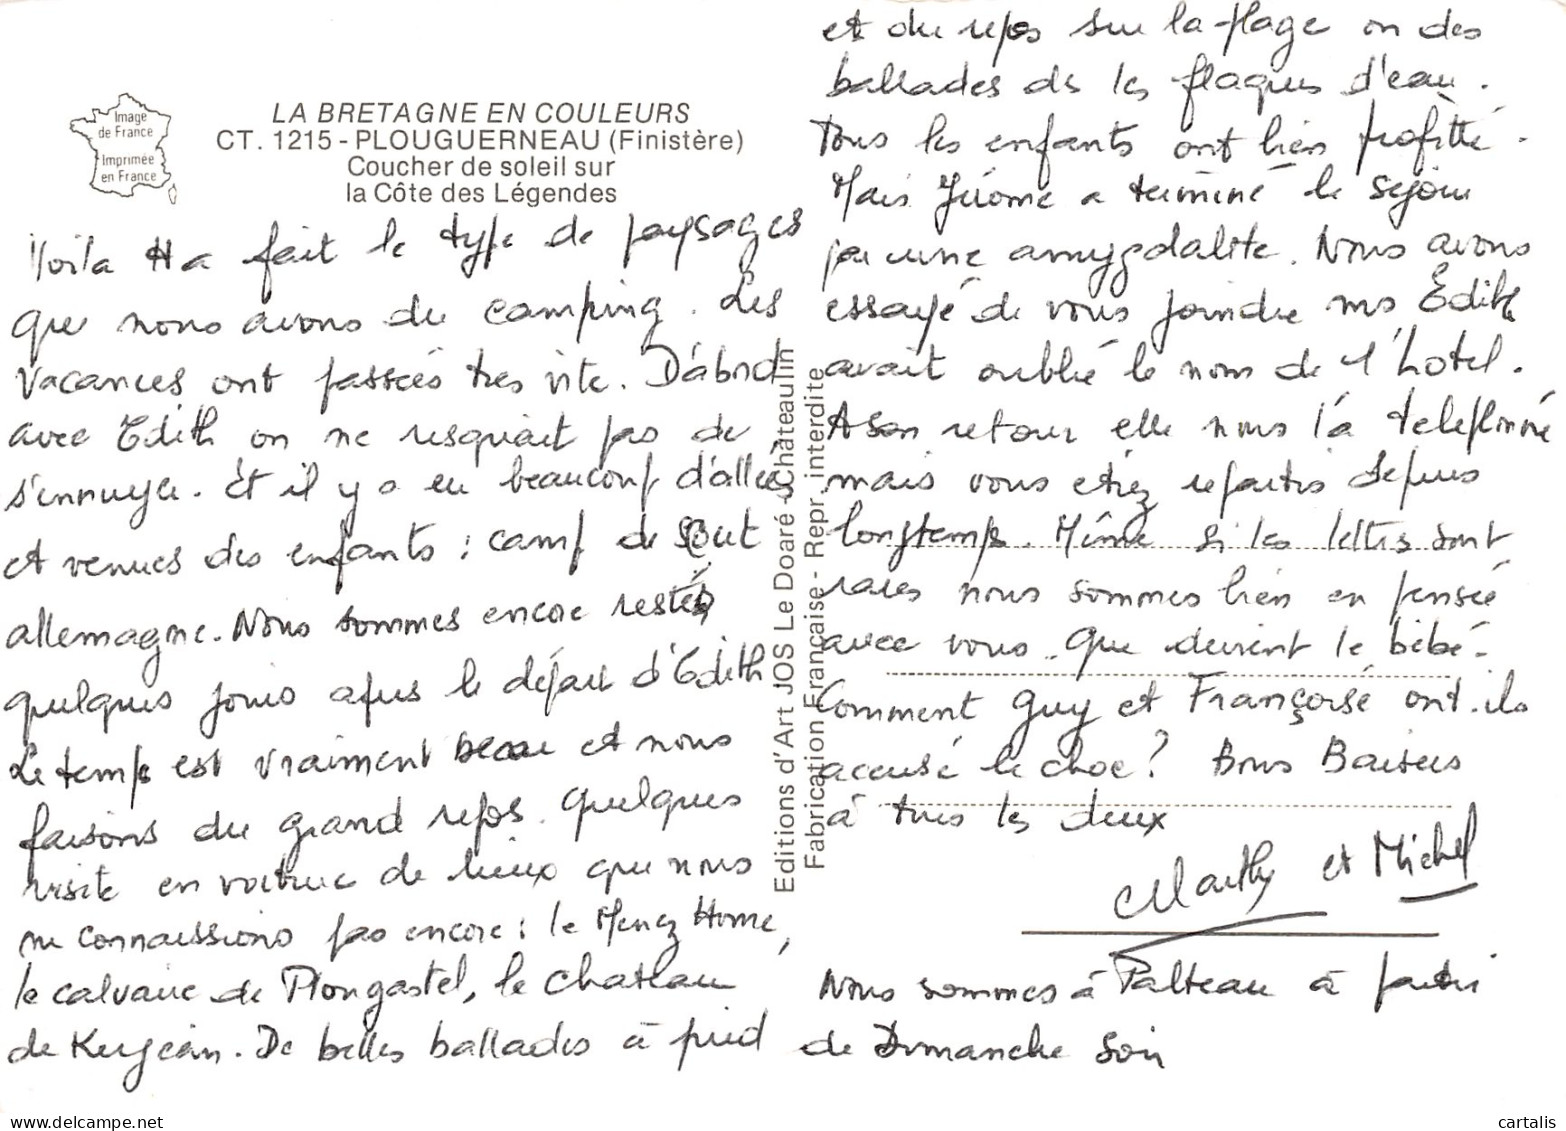 Image
de France
Imprimée
en France
LA BRETAGNE EN COULEURS
CT. 1215 - PLOUGUERNEAU (Finistère)
Coucher de soleil sur
la Côte des Légendes
Voila tt a fait le type de paysages
que nous avons du camping. Les
vacances ont passées très vite. D'abord
avec Edith on ne risquait pas de
s'ennuyer. Et il y a eu beaucoup d'allées
et venues des enfants : camp de scout
allemagne. Nous sommes encore restés
quelques jours apres le départ d'Edith
Le temps est vraiment beau et nous
faisons du grand repos. Quelques
visite en voiture de lieux que nous
ne connaissions pas encore : le Menez Home,
le calvaire de Plougastel, le chateau
de Kerjean. De belles ballades à pied
Editions d'Art JOS Le Doaré - Châteaulin
Fabrication Française - Repr. interdite
et du repos sur la plage ou des
ballades ds les flaques d'eau.
Tous les enfants ont bien profité.
Mais Jérome a terminé le séjour
par une amygdalite. Nous avons
essayé de vous joindre ms Edith
avait oublié le nom de l'hotel.
A son retour elle nous l'a telephoné
mais vous etiez repartis depuis
longtemps. Même si les lettres sont
rares nous sommes bien en pensée
avec vous. Que devient le bébé.
Comment Guy et Françoise ont-ils
accusé le choc ? Bons Baisers
à tous les deux
Marthy et Michel
Nous sommes à Palteau à partir
de Dimanche soir
cartalis